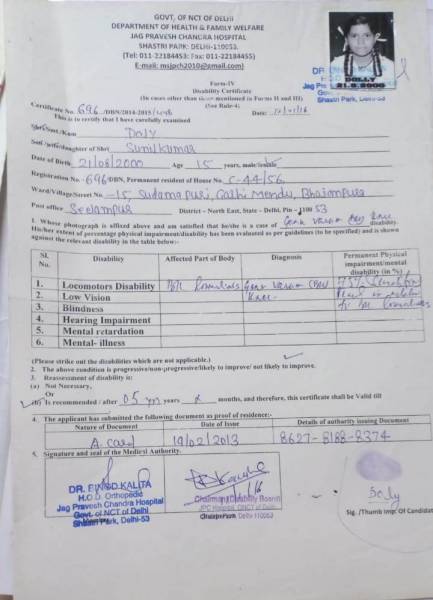 GOVT. OF NCT OF DELHI
DEPARTMENT OF HEALTH & FAMILY WELFARE
JAG PRAVESH CHANDRA HOSPITAL
SHASTRI PARK: DELHI-110053.
(Tel: 011-22184453: Fax: 011-22184455)
E-mail: msjpch2010@gmail.com)
DOLLY
21.8.2000
Shastri Park, Delhi-53
Form-IV
Disability Certificate
(In cases other than those mentioned in Forms II and III)
(See Rule-4)
Certificate No. 696 /DBN/2014-2015/ Date:
This is to certify that I have carefully examined
Shri/Smt/Kum Doly
Son/wife/daughter of Shri Sunil Kumar
Date of Birth 21/08/2000 Age 15 years, male/female
Registration No. 696 /DBN, Permanent resident of House No. C-44/56
Ward/Village/Street No. -15 Sudama Puri, Gathi Mendu, Bhajanpura
Post office Seelampur District - North East, State - Delhi, Pin - 1100 53
1. Whose photograph is affixed above and am satisfied that he/she is a case of Genu Varum Knee disability.
His/her extent of percentage physical impairment/disability has been evaluated as per guidelines (to be specified) and is shown
against the relevant disability in the table below:-
Sl. No. Disability Affected Part of Body Diagnosis Permanent Physical impairment/mental disability (in %)
1. Locomotors Disability Genu Varum Knee
2. Low Vision
3. Blindness
4. Hearing Impairment
5. Mental retardation
6. Mental- illness
(Please strike out the disabilities which are not applicable.)
2. The above condition is progressive/non-progressive/likely to improve/ not likely to improve.
3. Reassessment of disability is:
(a) Not Necessary,
Or
(b) Is recommended / after 05 years months, and therefore, this certificate shall be Valid till
4. The applicant has submitted the following document as proof of residence:-
Nature of Document Date of Issue Details of authority issuing Document
A. Card 19/02/2013 8627-8188-8374
5. Signature and seal of the Medical Authority.
KALITA
H.O.D. Orthopedic
Jag Pravesh Chandra Hospital
Govt. of NCT of Delhi
Shastri Park, Delhi-53
Chairman Disability Board
JPC Hospital, GNCT of Delhi
Delhi-110053
Sig. /Thumb Imp. Of Candidate